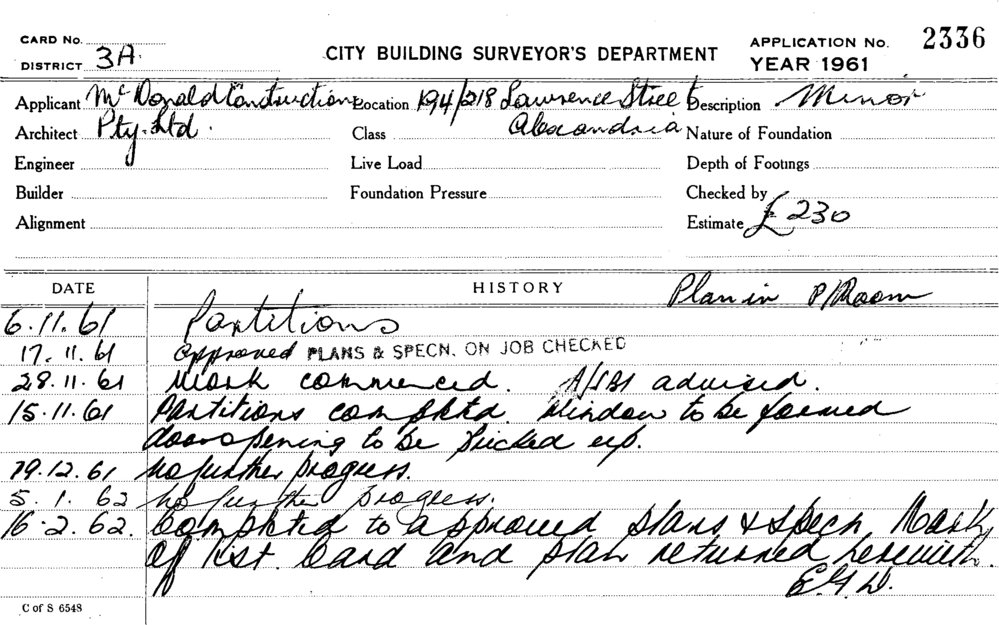 CARD No.
DISTRICT 3A
CITY BUILDING SURVEYOR'S DEPARTMENT
APPLICATION No. 2336
YEAR 1961
Applicant McDonald Constructions Location 194/218 Lawrence Street Description Minor
Architect Pty. Ltd. Class Alexandria Nature of Foundation
Engineer Live Load Depth of Footings
Builder Foundation Pressure Checked by
Alignment Estimate £230
DATE HISTORY Plan in P/Room
6.11.61 Partitions
17.11.61 approved PLANS & SPECN. ON JOB CHECKED
28.11.61 Work commenced. advised.
15.11.61 Partitions completed window to be formed
door opening to be bricked up.
19.12.61 No further progress.
5.1.62 No further progress.
16.2.62. Completed to approved plans & specn Mark
off list. Card and plan returned herewith.
C of S 6548